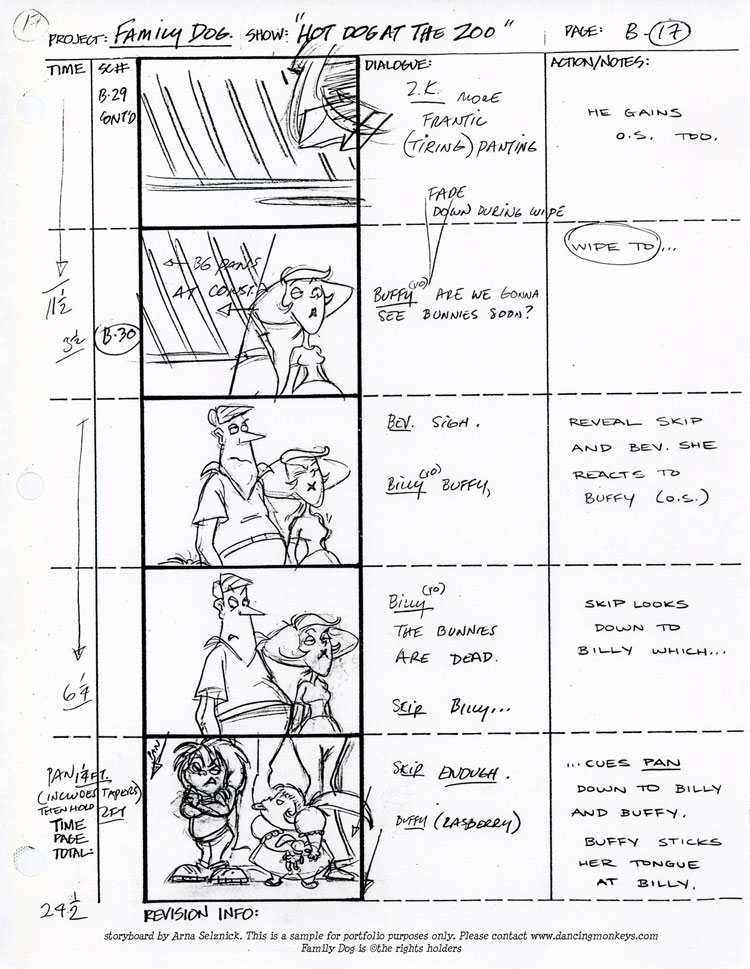 17
PROJECT: FAMILY DOG. SHOW: "HOT DOG AT THE ZOO" PAGE: B-17
TIME SC# DIALOGUE: ACTION/NOTES:
B.29
CONT'D
Z.K. MORE
FRANTIC
(TIRING) PANTING
HE GAINS
O.S. TOO.
FADE
DOWN DURING WIPE
WIPE TO...
11 1/2
3 1/2
B.30
← BG PANS
AT CONST.
BUFFY (VO) ARE WE GONNA
SEE BUNNIES SOON?
BEV. SIGH.
BILLY (VO) BUFFY,
REVEAL SKIP
AND BEV. SHE
REACTS TO
BUFFY (O.S.)
BILLY (VO)
THE BUNNIES
ARE DEAD.
SKIP BILLY...
SKIP LOOKS
DOWN TO
BILLY WHICH...
6 1/4
PAN
PAN 1 1/4 FT.
(INCLUDES TAPERS)
THEN HOLD 2FT
TIME
PAGE
TOTAL:
24 1/2
SKIP ENOUGH.
BUFFY (RASBERRY)
...CUES PAN
DOWN TO BILLY
AND BUFFY.
BUFFY STICKS
HER TONGUE
AT BILLY.
REVISION INFO:
storyboard by Arna Selznick. This is a sample for portfolio purposes only. Please contact www.dancingmonkeys.com
Family Dog is ©the rights holders